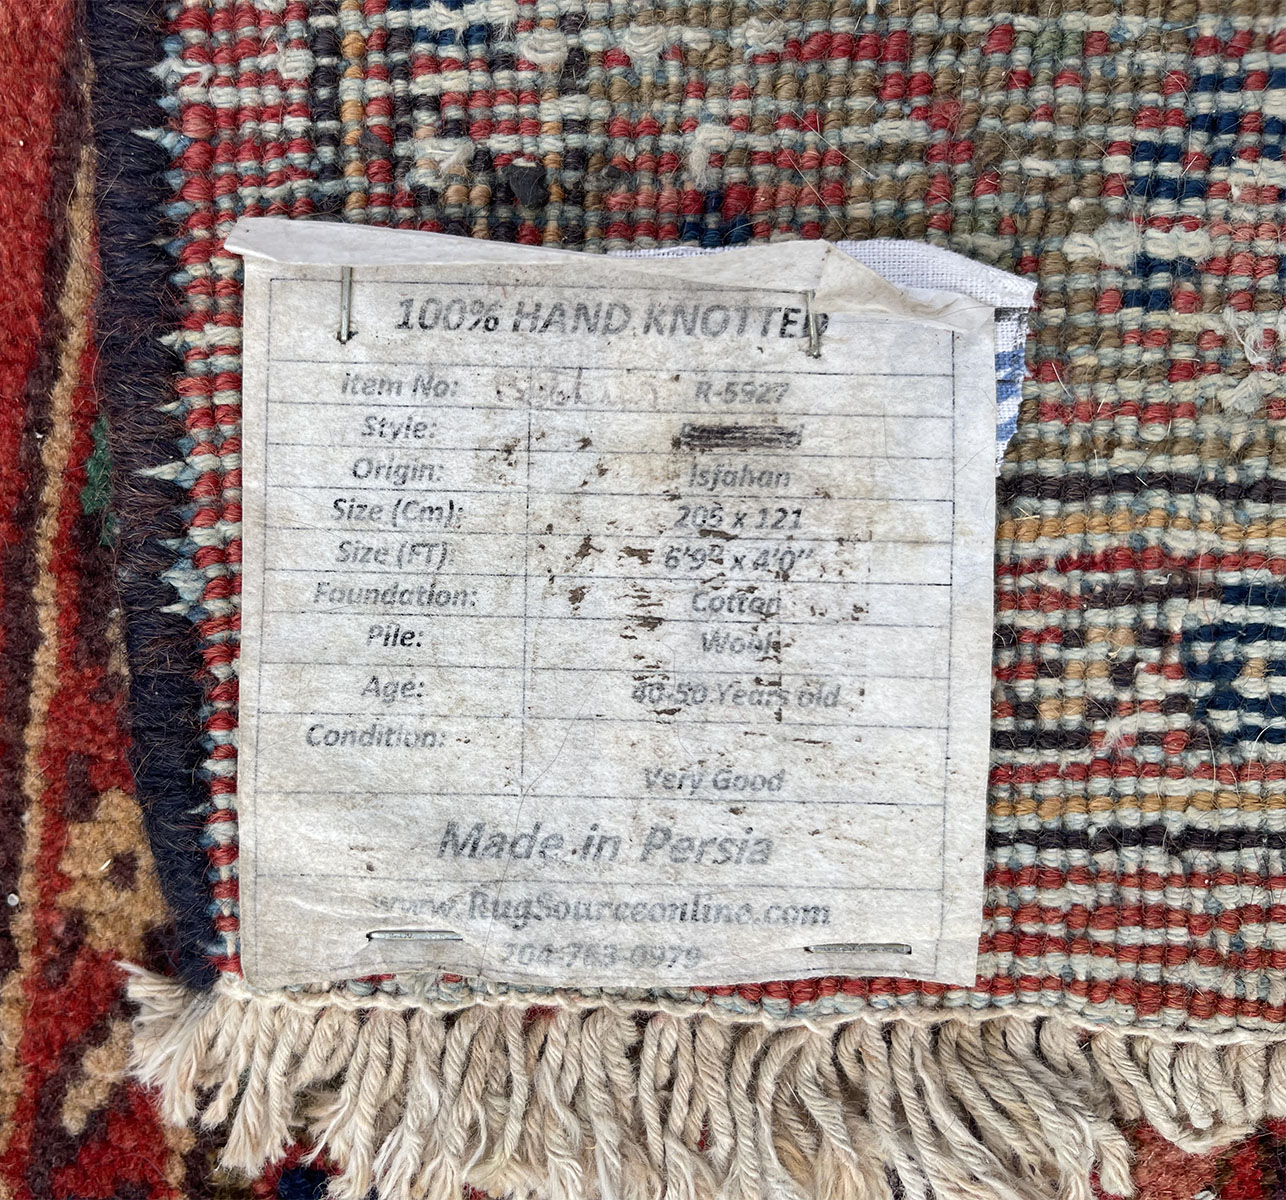 100% HAND KNOTTED
Item No: R-5927
Style:
Origin: Isfahan
Size (Cm): 205 x 121
Size (FT): 6'9" x 4'0"
Foundation: Cotton
Pile: Wool
Age: 40-50 Years old
Condition:
Very Good
Made in Persia
www.RugSourceonline.com
704-763-0979